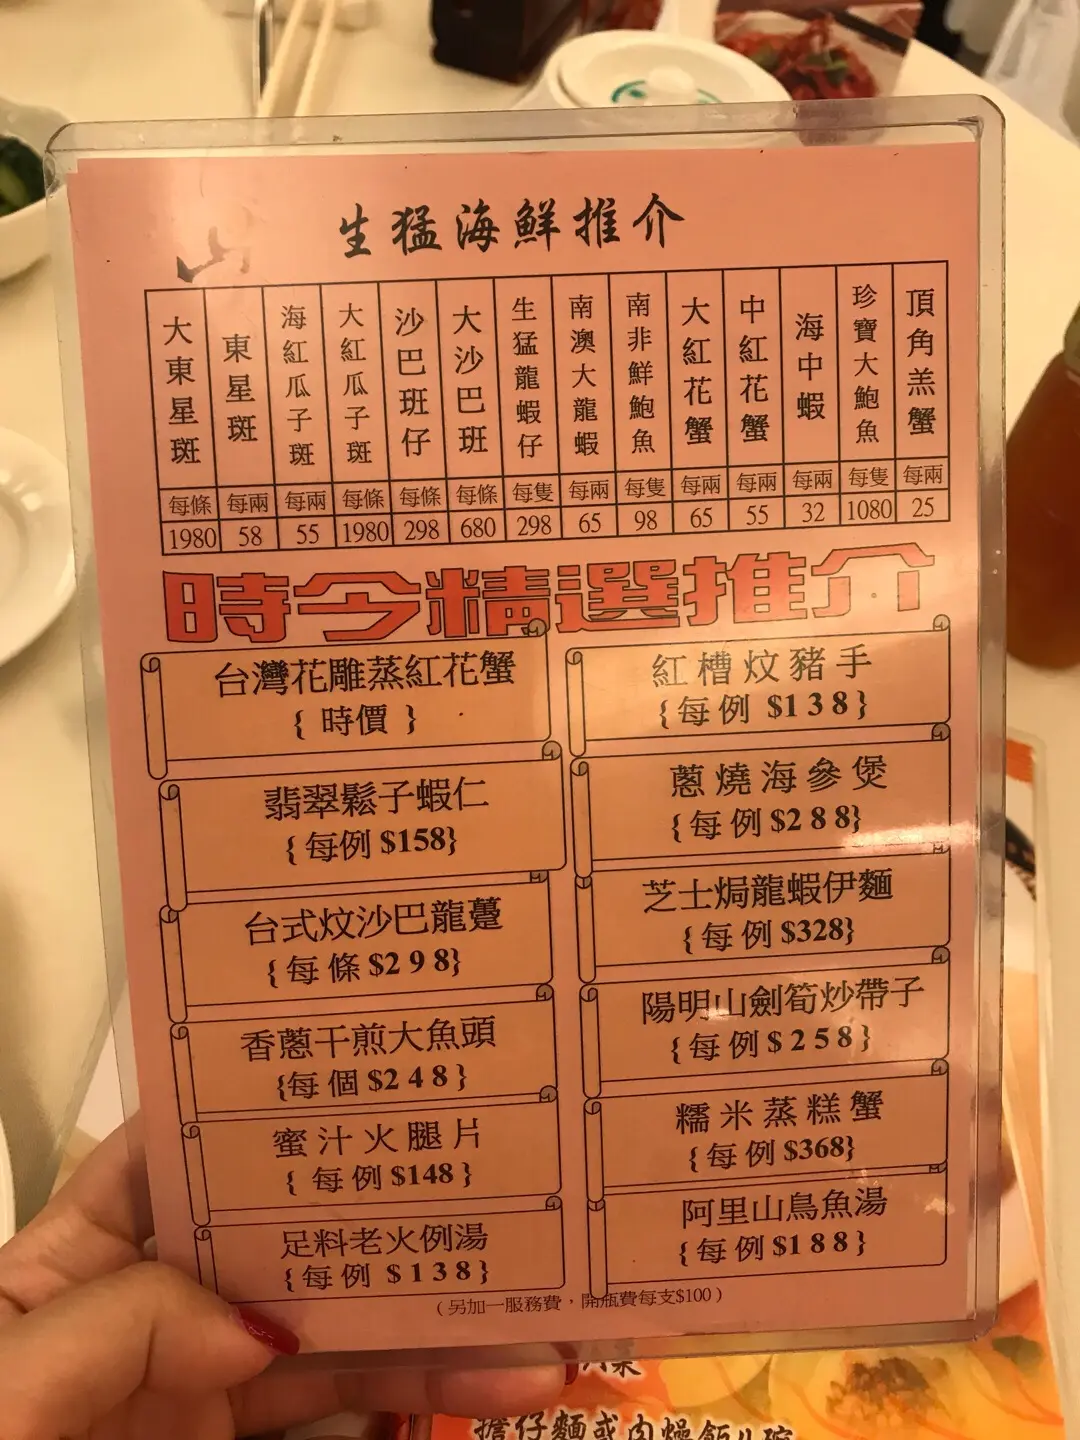 生猛海鮮推介
大東星斑 每條 1980
東星斑 每兩 58
海紅瓜子斑 每兩 55
大紅瓜子斑 每條 1980
沙巴班仔 每條 298
大沙巴班 每條 680
生猛龍蝦仔 每隻 298
南澳大龍蝦 每兩 65
南非鮮鮑魚 每隻 98
大紅花蟹 每兩 65
中紅花蟹 每兩 55
海中蝦 每兩 32
珍寶大鮑魚 每隻 1080
頂角羔蟹 每兩 25
時令精選推介
台灣花雕蒸紅花蟹
{ 時價 }
翡翠鬆子蝦仁
{每例 $158}
台式炆沙巴龍躉
{每條 $298}
香蔥干煎大魚頭
{每個 $248}
蜜汁火腿片
{每例 $148}
足料老火例湯
{每例 $138}
紅槽炆豬手
{每例 $138}
蔥燒海參煲
{每例 $288}
芝士焗龍蝦伊麵
{每例 $328}
陽明山劍筍炒帶子
{每例 $258}
糯米蒸糕蟹
{每例 $368}
阿里山鳥魚湯
{每例 $188}
（另加一服務費，開瓶費每支$100）
擔仔麵或肉燥飯